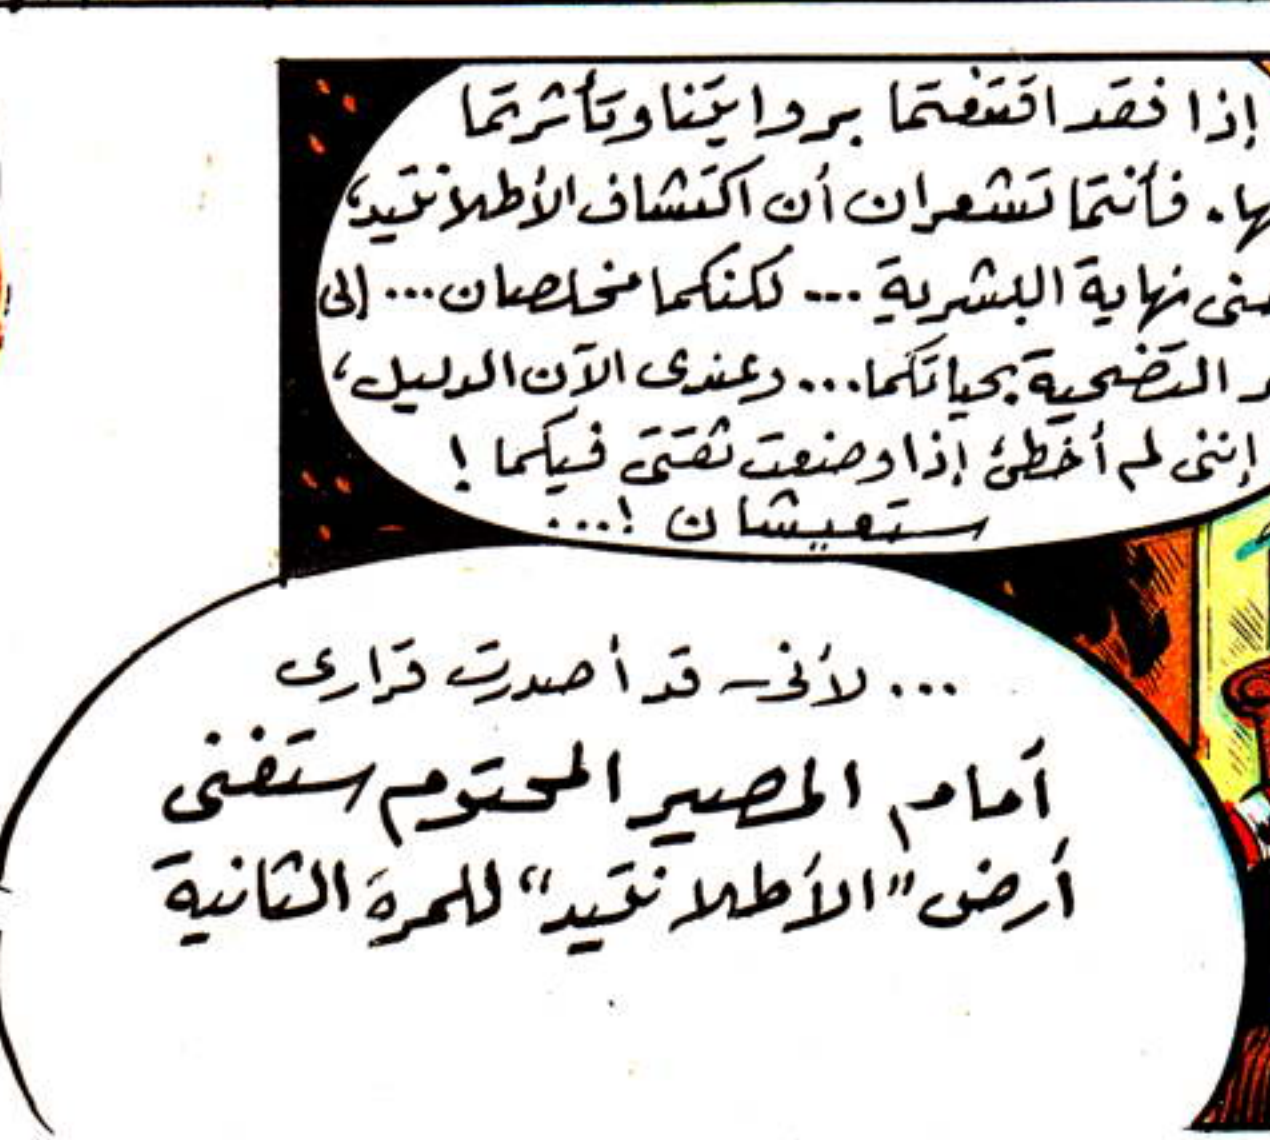 إذا فقد اقتنعتما بروايتنا وتأثرتما
بها. فأنتما تشعران أن اكتشاف الأطلانتيد،
نهاية البشرية ... لكنكما مخلصان... إلى
التضحية بحياتكما... وعندى الآن الدليل،
إننى لم أخطئ إذا وضعت ثقتى فيكما !
ستعيشان !...
... لأنى قد أصدرت قرارى
أمام المصير المحتوم ستفنى
أرض "الأطلانتيد" للمرة الثانية